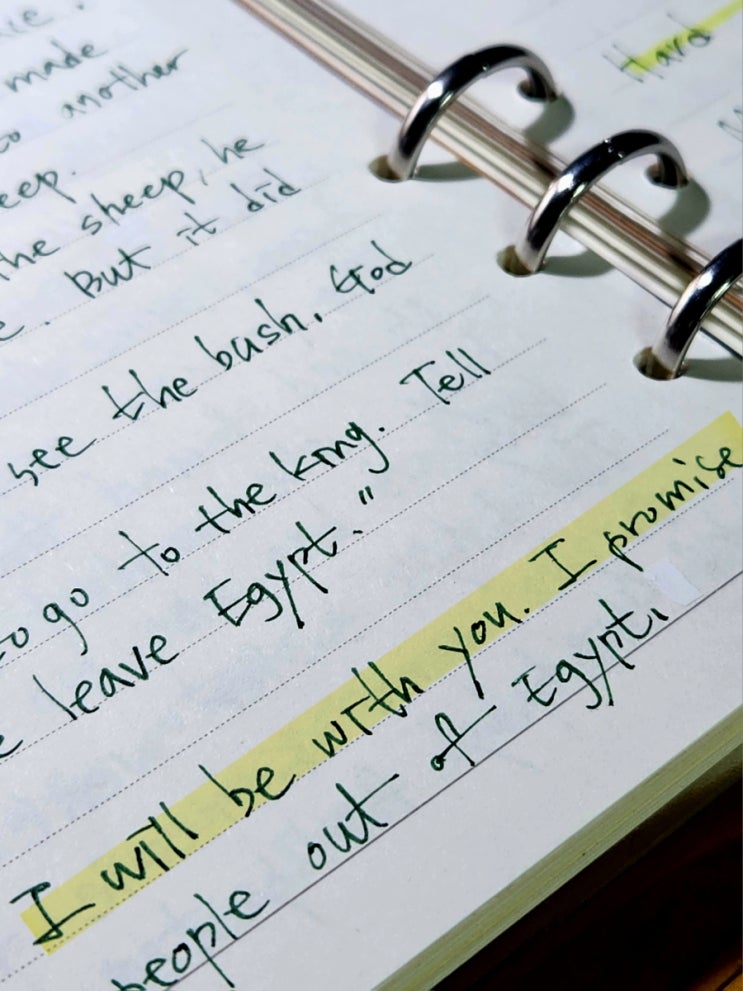 made
another
the sheep, he
. But it did
see the bush, God
go to the king. Tell
leave Egypt."
I will be with you. I promise
people out of Egypt.
Hard